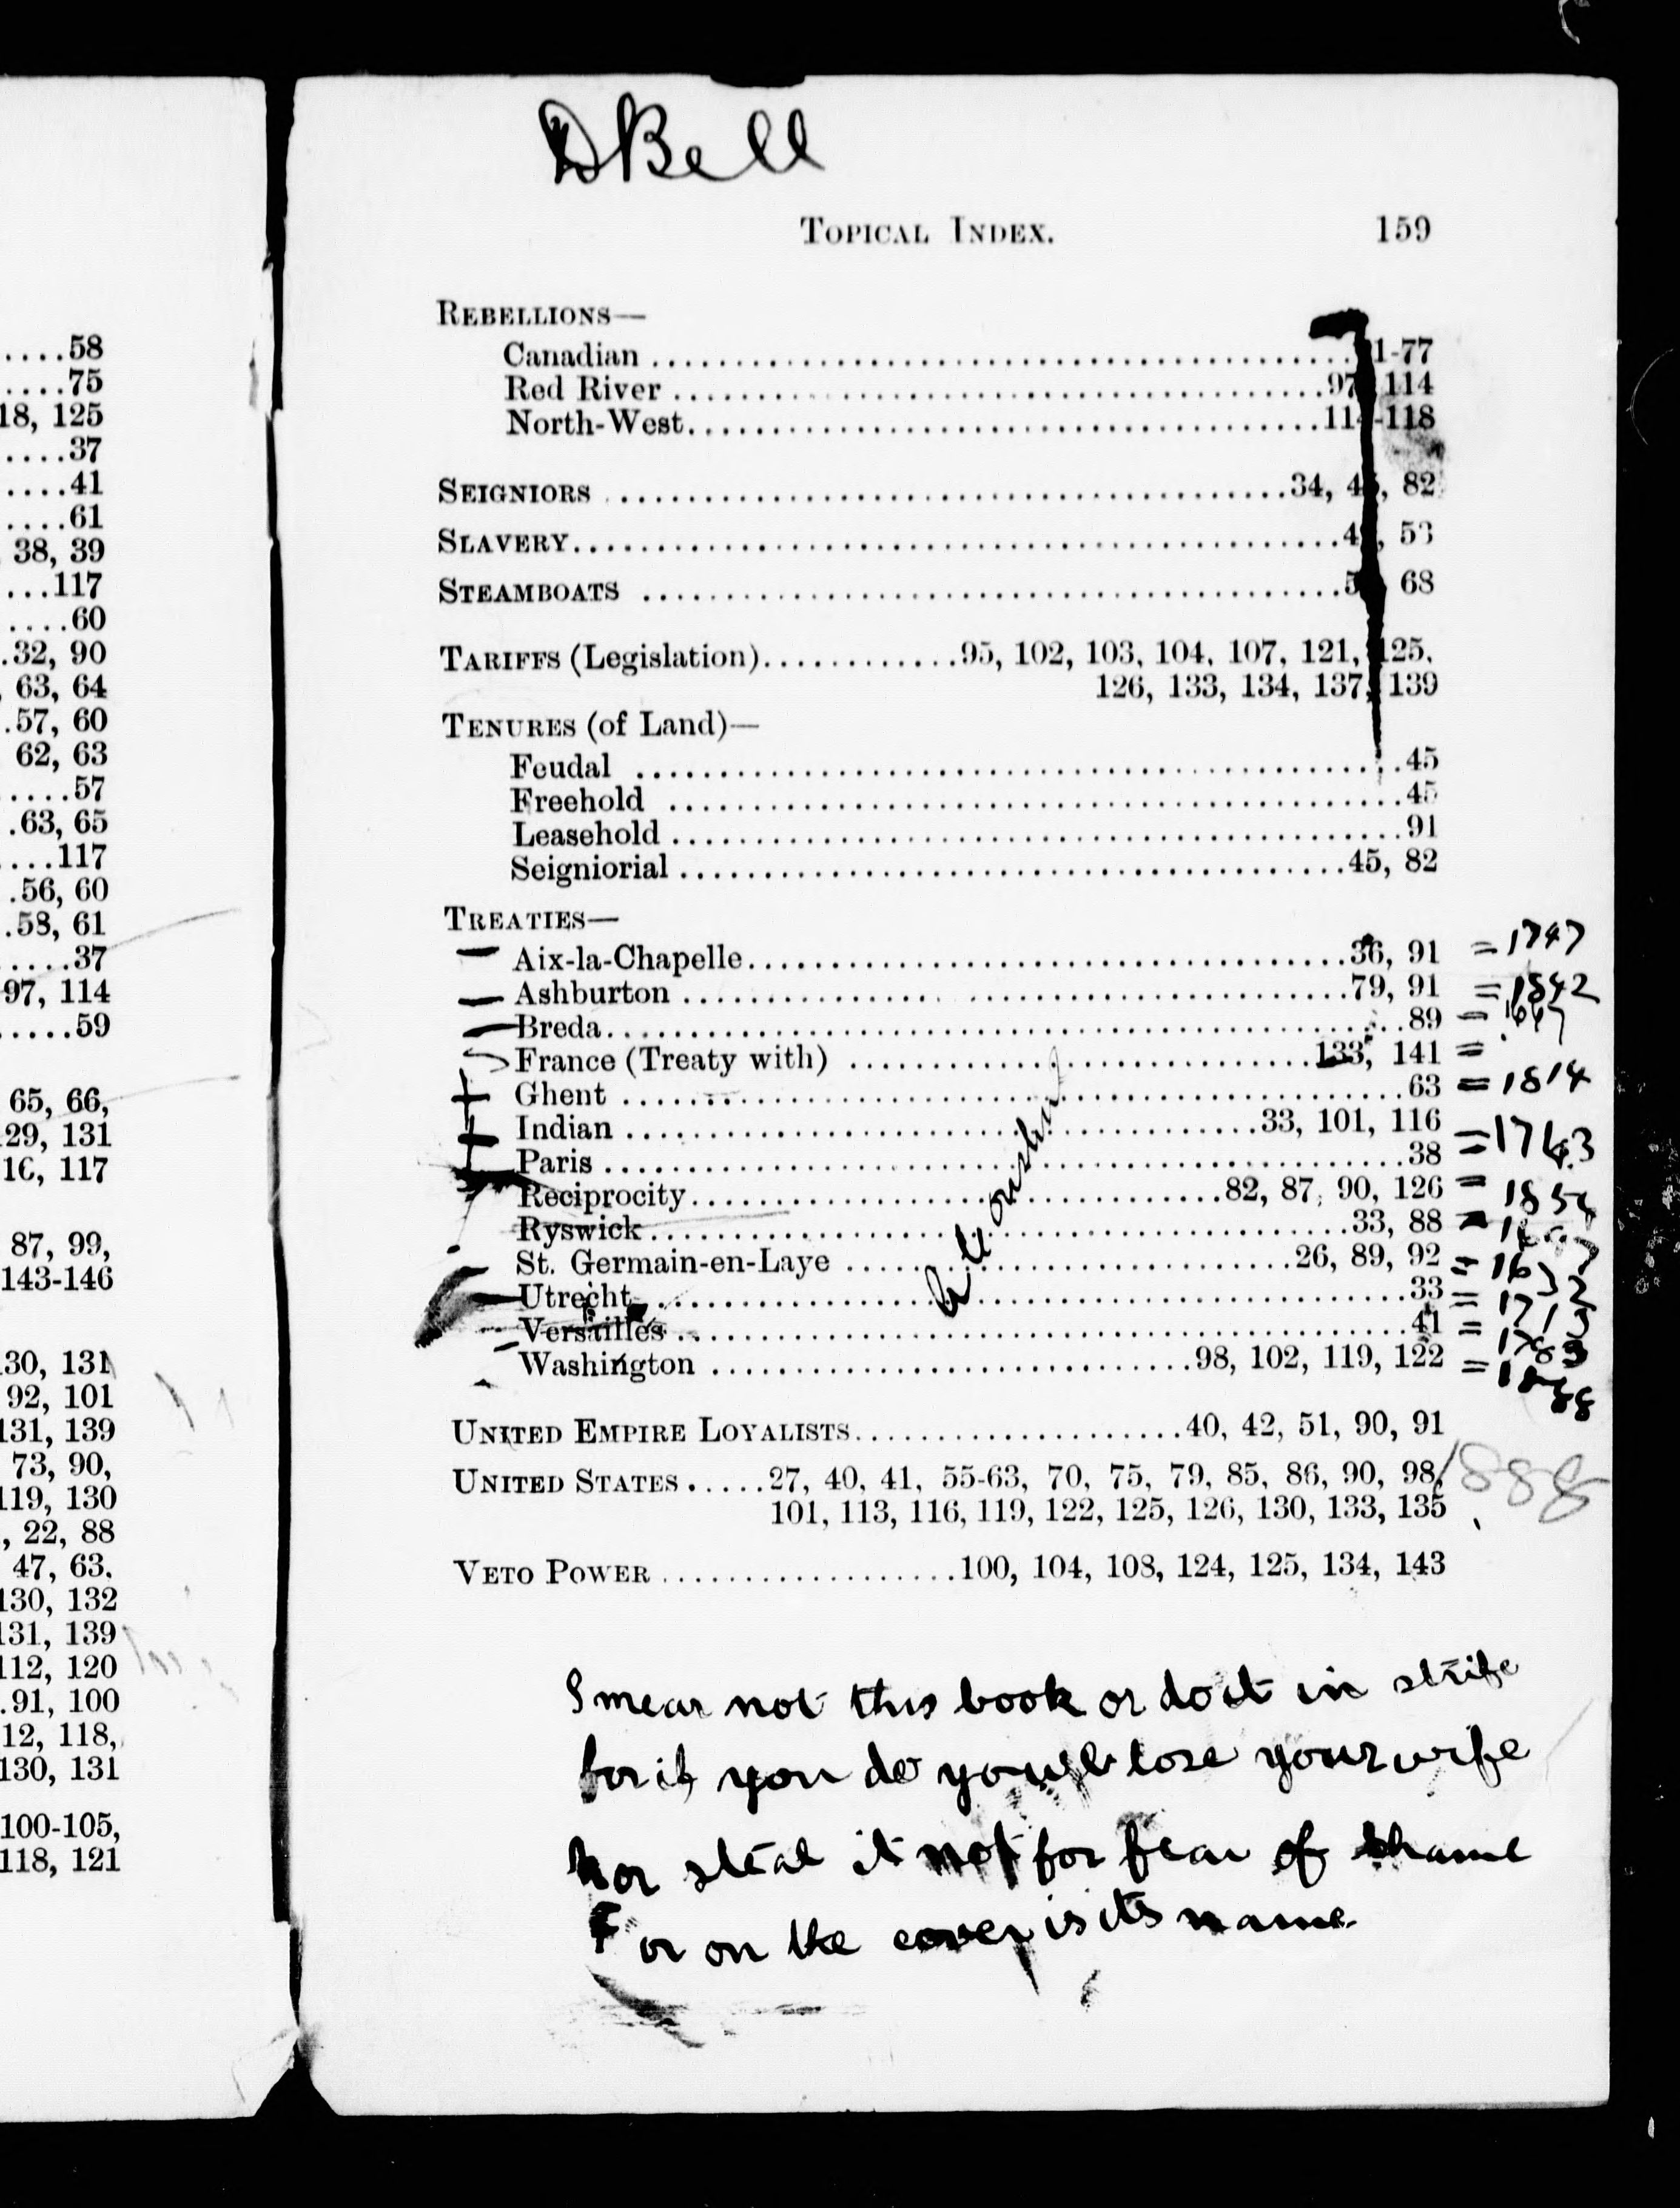 ....58
....75
18, 125
....37
....41
....61
38, 39
...117
....60
.32, 90
, 63, 64
.57, 60
62, 63
.....57
.63, 65
....117
.56, 60
.58, 61
.....37
97, 114
.....59
65, 66,
29, 131
116, 117
87, 99,
143-146
130, 131
92, 101
131, 139
73, 90,
119, 130
, 22, 88
47, 63.
130, 132
131, 139
112, 120
.91, 100
12, 118,
130, 131
100-105,
118, 121
D Bell
TOPICAL INDEX. 159
REBELLIONS—
Canadian ........ 1-77
Red River ........ 97, 114
North-West ........ 114-118
SEIGNIORS ........ 34, 45, 82
SLAVERY ........ 53
STEAMBOATS ........ 68
TARIFFS (Legislation) ........ 95, 102, 103, 104, 107, 121, 125,
126, 133, 134, 137, 139
TENURES (of Land)—
Feudal ........ 45
Freehold ........ 45
Leasehold ........ 91
Seigniorial ........ 45, 82
TREATIES—
Aix-la-Chapelle ........ 36, 91 = 1747
Ashburton ........ 79, 91 = 1842
Breda ........ 89 = 1667
France (Treaty with) ........ 133, 141 =
Ghent ........ 63 = 1814
Indian ........ 33, 101, 116
Paris ........ 38 = 1763
Reciprocity ........ 82, 87, 90, 126 = 1854
Ryswick ........ 33, 88 = 1697
St. Germain-en-Laye ........ 26, 89, 92 = 1632
Utrecht ........ 33 = 1713
Versailles ........ 41 = 1783
Washington ........ 98, 102, 119, 122 =
UNITED EMPIRE LOYALISTS ........ 40, 42, 51, 90, 91
UNITED STATES ..... 27, 40, 41, 55-63, 70, 75, 79, 85, 86, 90, 98, 1888
101, 113, 116, 119, 122, 125, 126, 130, 133, 135
VETO POWER ........ 100, 104, 108, 124, 125, 134, 143
Smear not this book or do it in strife
for if you do you'll lose your wife
Nor steal it not for fear of shame
For on the cover is its name